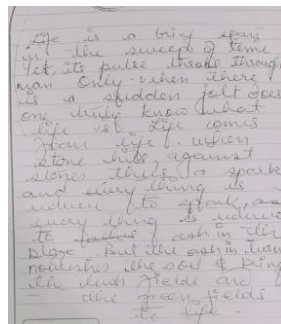 Life is a brief span
in the sweep of time
Yet, its pulse throbs through
man Only when there
is a sudden jolt does
one truly know what
life is. Life comes
from life. when
stone hits against
stone there's a spark
and every thing is
to spark, as
every thing is
to ash in the
But the ash in turn
nourishes the soil &
the lush fields are
the green fields
to life